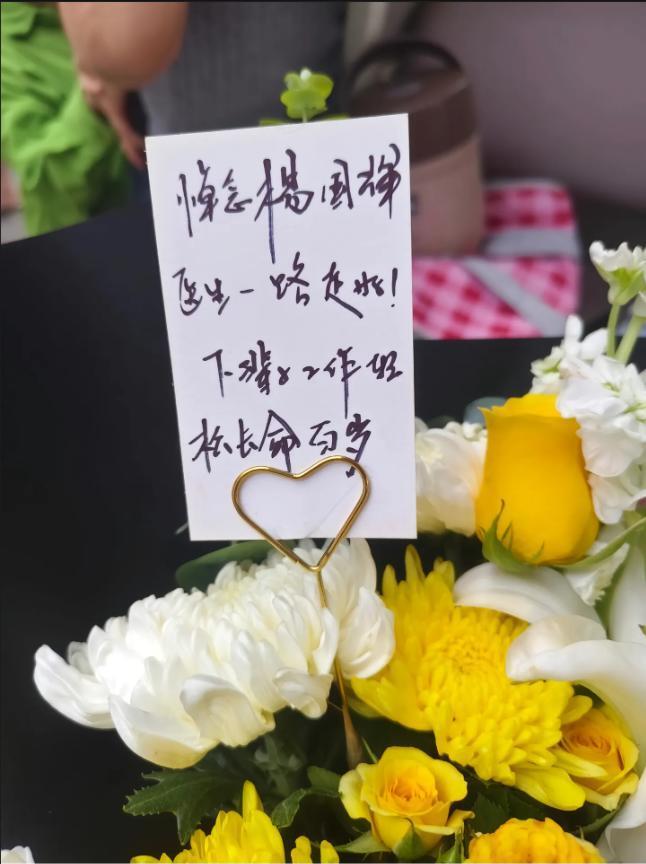 悼念楊国雄
医生一路走好!
下辈子工作轻
松长命百岁